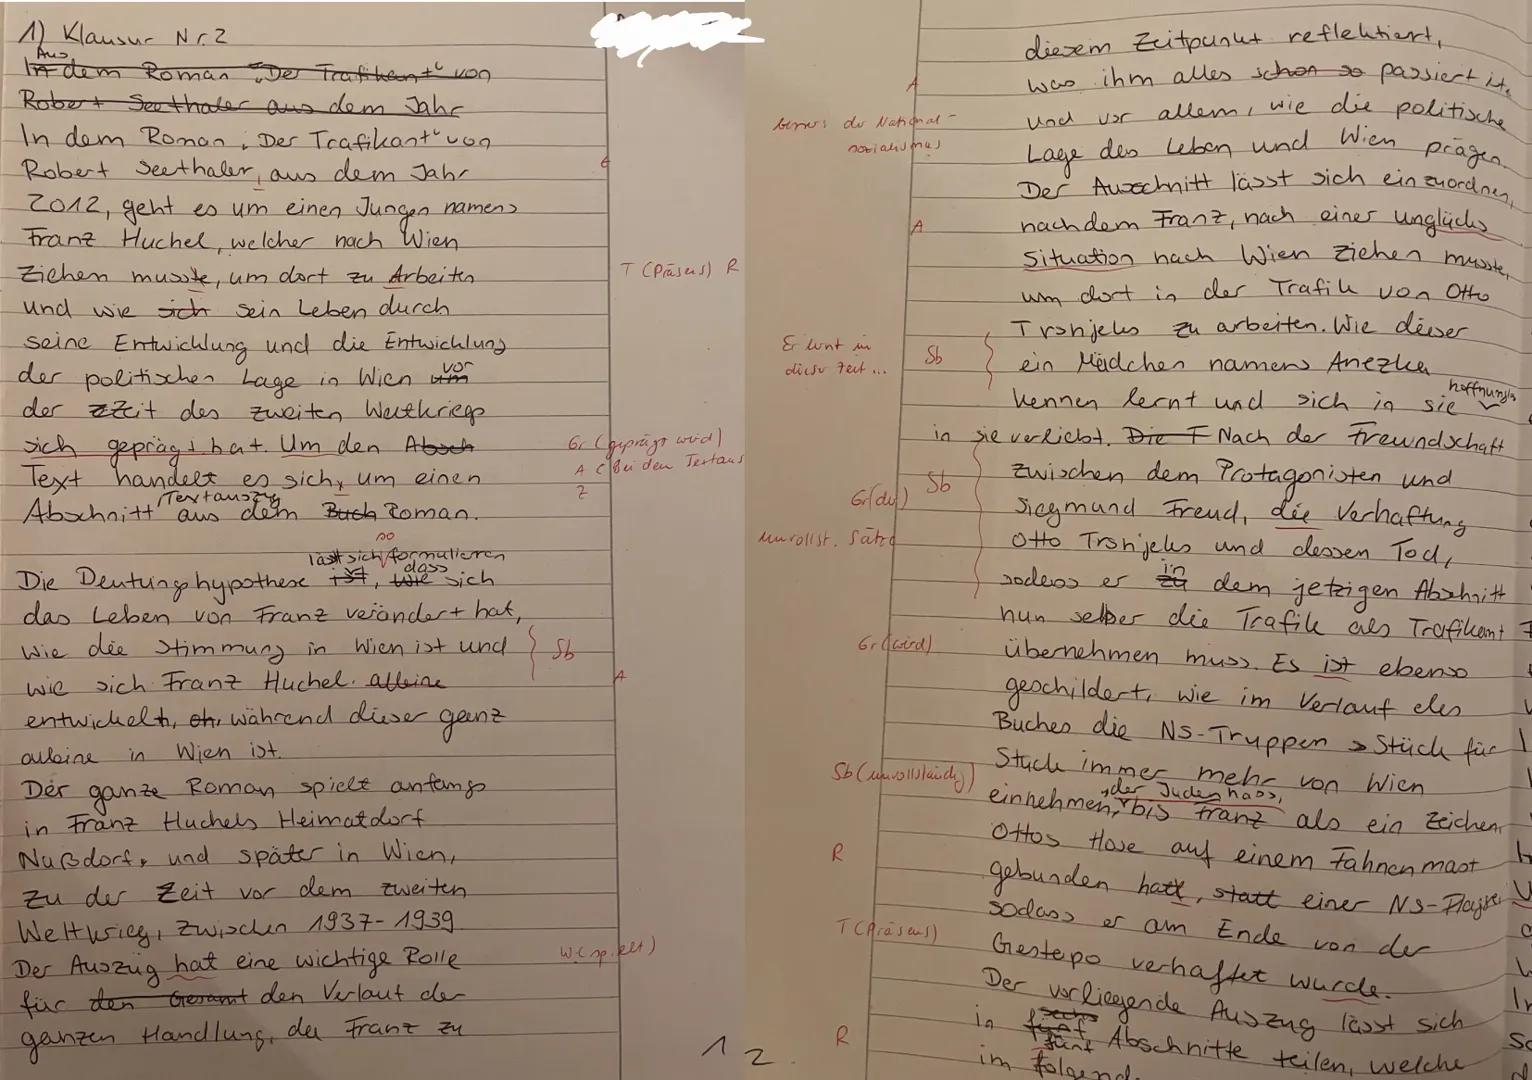 1) Klausur Nr. 2
Aus
In dem Roman "Der Trafikant" von
Robert Seethaler aus dem Jahr
In dem Roman „Der Trafikant" von
Robert Seethaler, aus dem Jahr
2012, geht es um einen Jungen namens
Franz Huchel, welcher nach Wien
Ziehen musste, um dort zu Arbeiten
T (Präsens) R
und wie sich sein Leben durch
seine Entwicklung und die Entwicklung
der politischen Lage in Wien um vor
der zZeit des zweiten Weltkriegs
sich geprägt hat. Um den Absch
Gr (geprägt wird)
Text handelt es sich, um einen
A (Bei dem Textaus
Z
Abschnitt Textauszug aus dem Buch Roman.
so
lässt sich formulieren
Die Deutungshypothese ist, wie dass sich
das Leben von Franz verändert hat,
wie die Stimmung in Wien ist und
Sb
wie sich Franz Huchel alleine
A
entwickelt, oh, während dieser ganz
alleine in Wien ist.
Der ganze Roman spielt anfangs
in Franz Huchels Heimatdorf
Nußdorf, und später in Wien,
zu der Zeit vor dem zweiten
Weltkrieg, zwischen 1937-1939
Der Auszug hat eine wichtige Rolle
W (spielt)
für den Gesamt den Verlauf der
ganzen Handlung, da Franz zu
1
diesem Zeitpunkt reflektiert,
A
was ihm alles schon so passiert ist.
und vor allem, wie die politische
der National-
sozialismus
Lage des Leben und Wien prägen.
Der Ausschnitt lässt sich einzuordnen,
A
nachdem Franz, nach einer unglücks
Situation nach Wien ziehen musste,
um dort in der Trafik von Otto
Trsnjeks zu arbeiten. Wie dieser
Er lernt in
dieser Zeit ...
Sb
ein Mädchen namens Anezka
kennen lernt und sich in sie hoffnungslos
in sie verliebt. Die F Nach der Freundschaft
zwischen dem Protagonisten und
Gr (der)
Sb
Siegmund Freud, die Verhaftung
unvollst. Sätze
Otto Trsnjeks und dessen Tod,
sodass er zu in dem jetzigen Abschnitt
nun selber die Trafik als Trafikant
Gr (wird)
übernehmen muss. Es ist ebenso
geschildert, wie im Verlauf des
Buches die NS-Truppen Stück für
Stück immer mehr von Wien
Sb (unvollständig)
einnehmen, der Judenhass, bis Franz als ein Zeichen,
Ottos Hose auf einem Fahnenmast
R
gebunden hatt, statt einer NS-Flagge
sodass er am Ende von der
T (Präsens)
Gestapo verhaftet wurde.
Der vorliegende Auszug lässt sich
in fünf sechs fünf Abschnitte teilen, welche
R
im folgend
2.